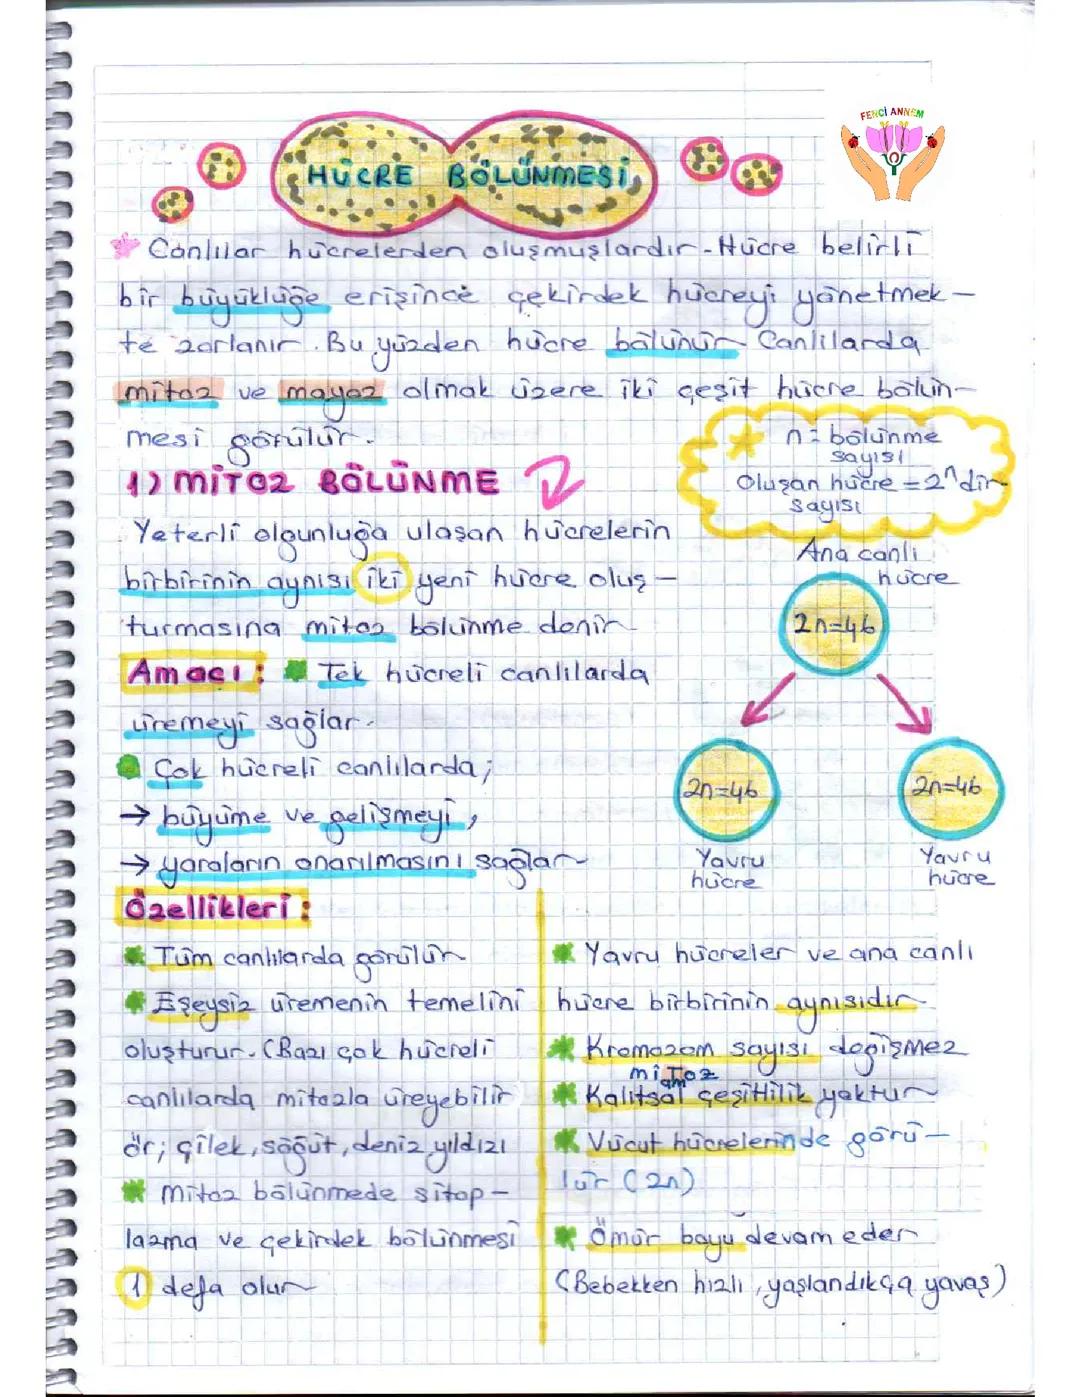 FENCİ ANNEM
HÜCRE BÖLÜNMESİ
Canlılar hücrelerden oluşmuşlardır. Hücre belirli
bir büyüklüğe erişince çekirdek hücreyi yönetmek-
te zorlanır. Bu yüzden hücre bölünür. Canlılarda
mitoz ve mayoz olmak üzere iki çeşit hücre bölün-
mesi görülür.
n = bölünme
sayısı
Oluşan hücre = 2ⁿ dir
sayısı
1) MİTOZ BÖLÜNME
Yeterli olgunluğa ulaşan hücrelerin
birbirinin aynısı iki yeni hücre oluş-
turmasına mitoz bölünme denir.
Ana canlı
hücre
2n=46
2n=46
2n=46
Yavru
hücre
Yavru
hücre
Amacı: Tek hücreli canlılarda
üremeyi sağlar.
Çok hücreli canlılarda;
→ büyüme ve gelişmeyi,
→ yaraların onarılmasını sağlar
Özellikleri:
Tüm canlılarda görülür
Eşeysiz üremenin temelini
oluşturur. (Bazı çok hücreli
canlılarda mitozla üreyebilir
ör; çilek, söğüt, deniz yıldızı
Mitoz bölünmede sitop-
lazma ve çekirdek bölünmesi
1 defa olur
Yavru hücreler ve ana canlı
hücre birbirinin aynısıdır.
Kromozom sayısı değişmez
Kalıtsal çeşitlilik yoktur
Vücut hücrelerinde görü-
lür (2n)
Ömür boyu devam eder
(Bebekken hızlı, yaşlandıkça yavaş)